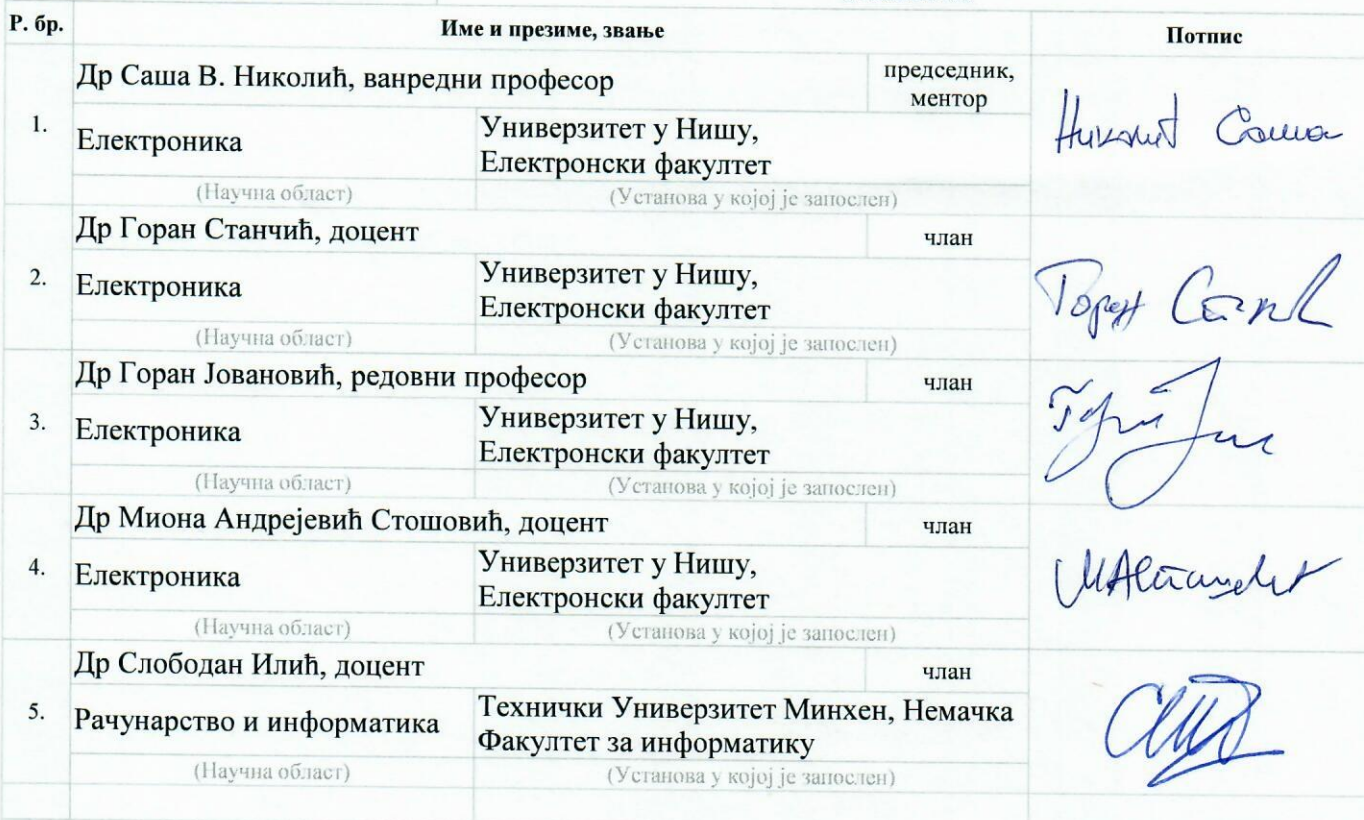 Р. бр. Име и презиме, звање Потпис
Др Саша В. Николић, ванредни професор председник,
ментор
1.
Електроника Универзитет у Нишу,
Електронски факултет
Николић Саша
(Научна област) (Установа у којој је запослен)
Др Горан Станчић, доцент члан
2.
Електроника Универзитет у Нишу,
Електронски факултет
Горан
(Научна област) (Установа у којој је запослен)
Др Горан Јовановић, редовни професор члан
3.
Електроника Универзитет у Нишу,
Електронски факултет
(Научна област) (Установа у којој је запослен)
Др Миона Андрејевић Стошовић, доцент члан
4.
Електроника Универзитет у Нишу,
Електронски факултет
(Научна област) (Установа у којој је запослен)
Др Слободан Илић, доцент члан
5.
Рачунарство и информатика Технички Универзитет Минхен, Немачка
Факултет за информатику
(Научна област) (Установа у којој је запослен)